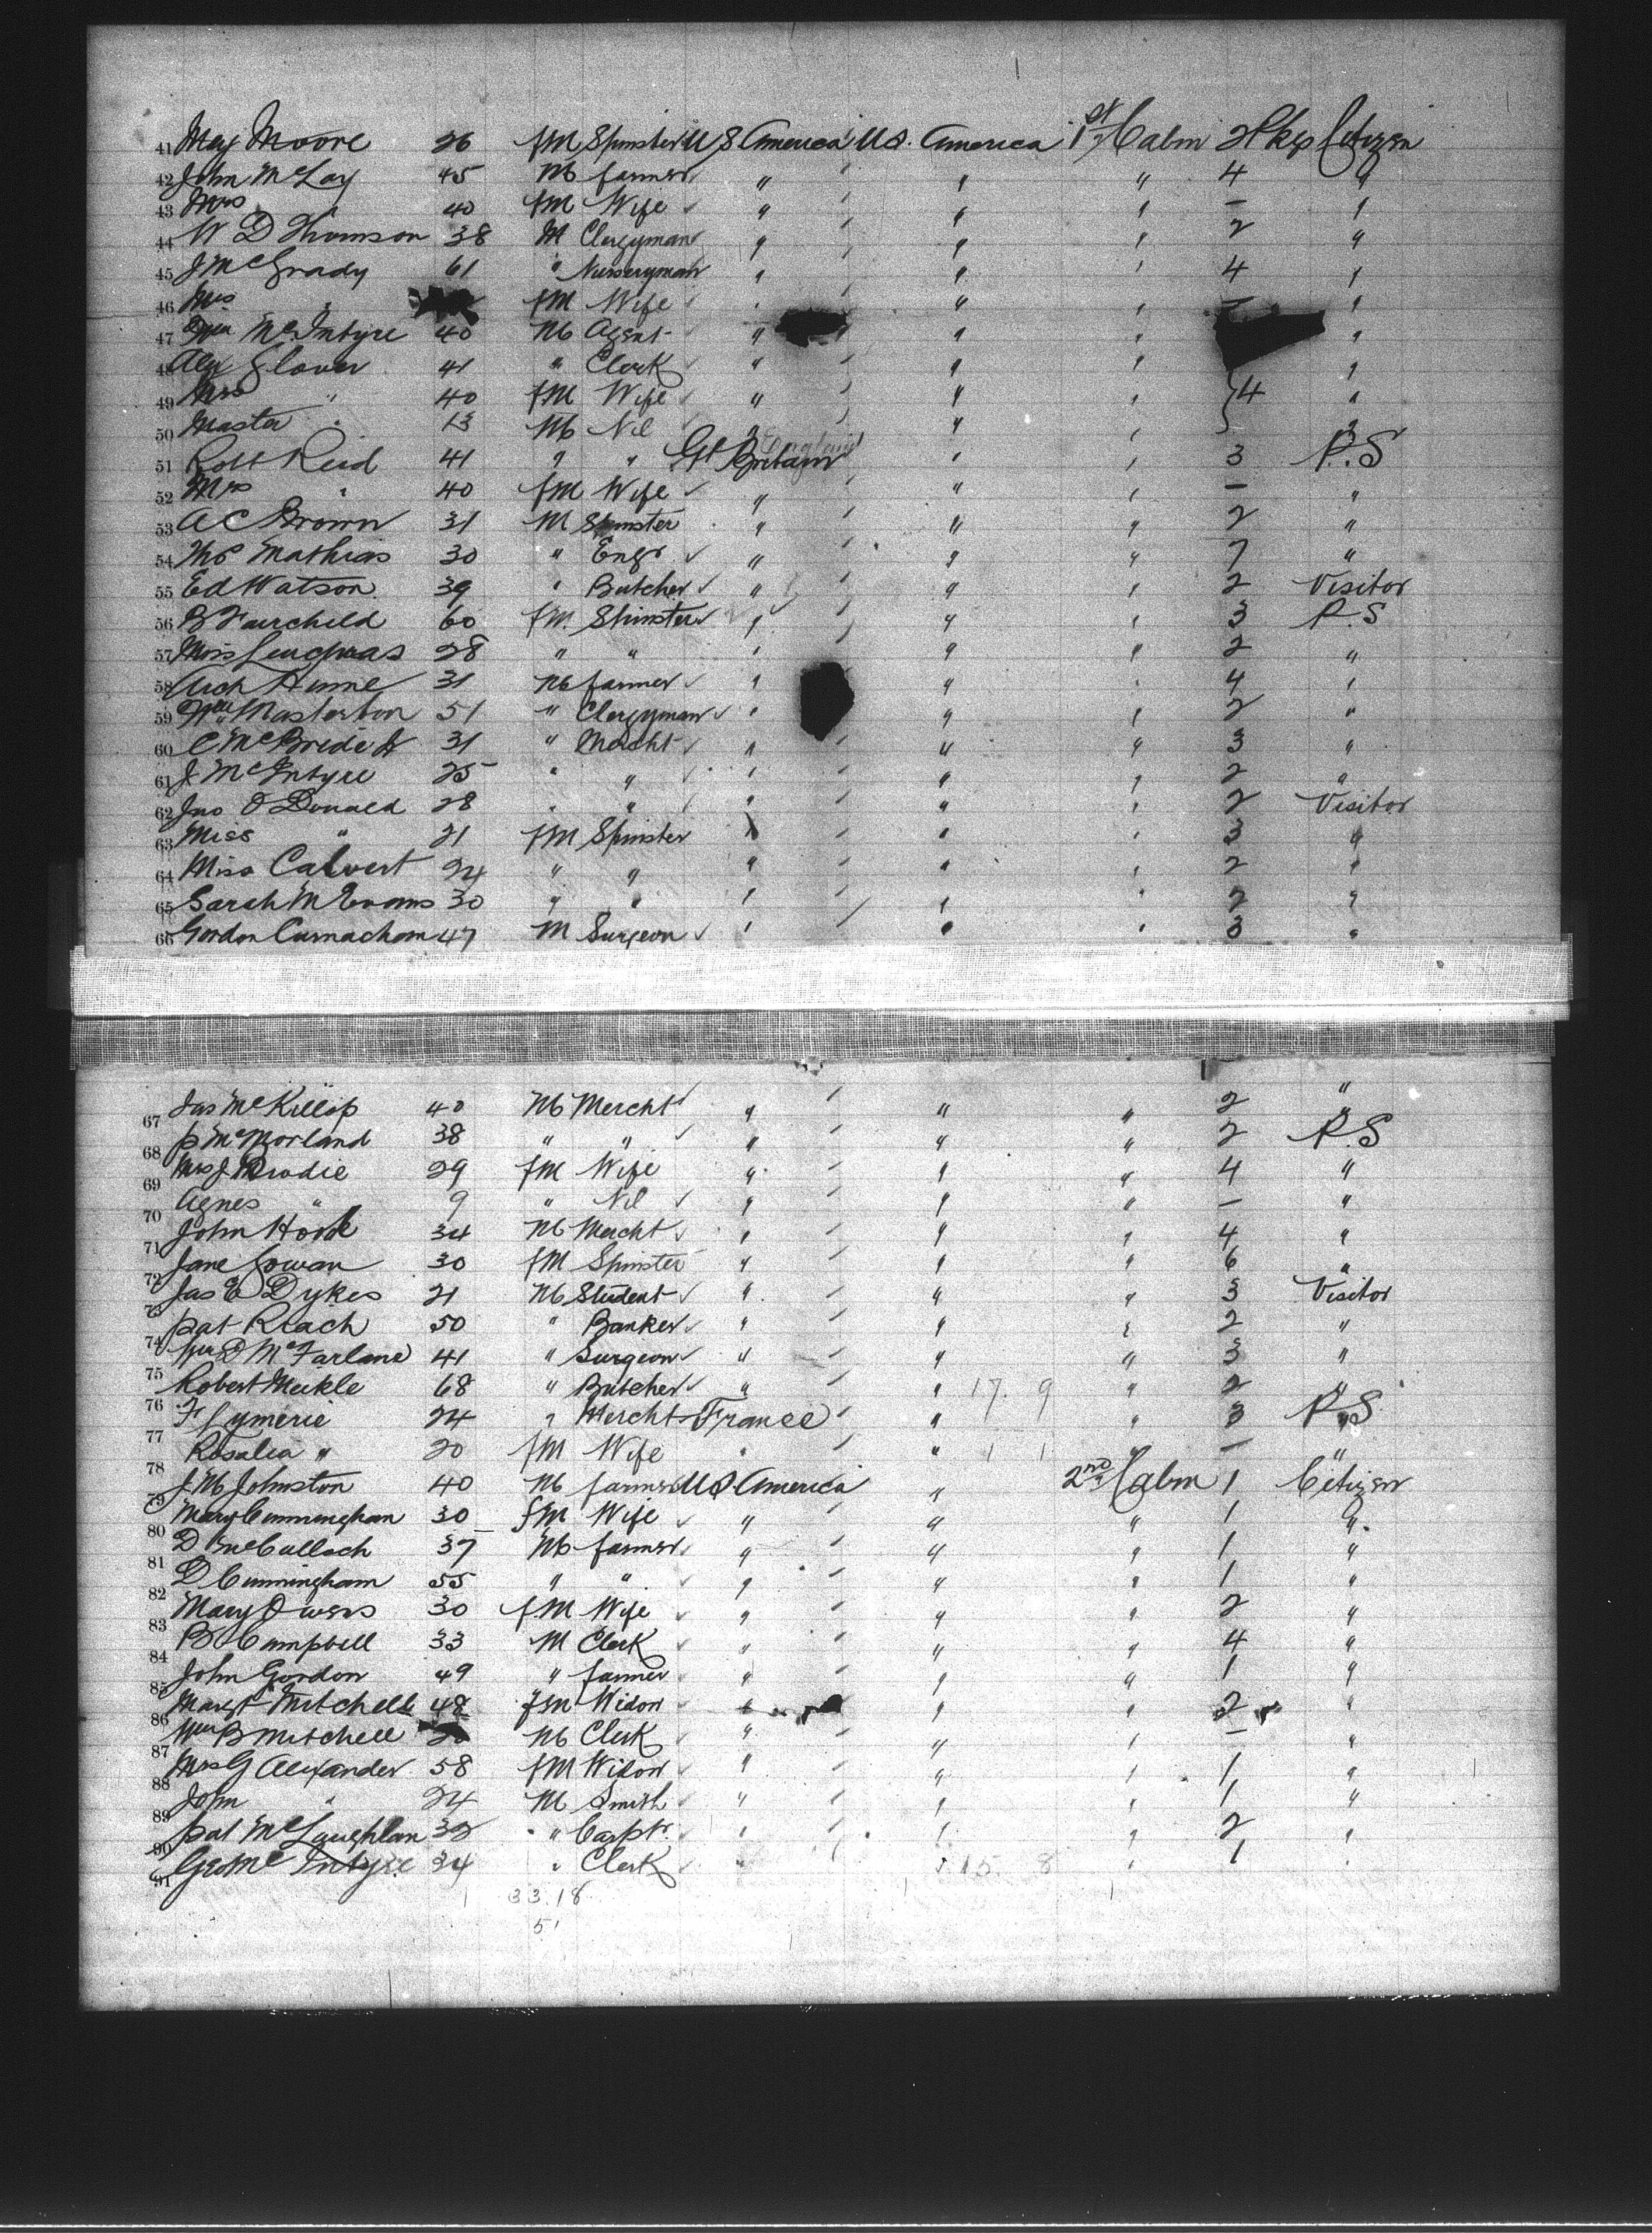 41 May Moore 26 fM Spinster U S America U S. America 1st Cabin 2 Pkgs Citizen
42 John McLay 45 M farmer " " " 4 "
43 Mrs " 40 fM Wife " " " — "
44 W D Thomson 38 M Clergyman " " " 2 "
45 J McGrady 61 " Nurseryman " " " 4 "
46 Mrs " fM Wife " " " — "
47 Wm McIntyre 40 M Agent " " " "
48 Alex Glover 41 " Clerk " " " "
49 Mrs " 40 fM Wife " " " 4 "
50 Master " 13 M Nil " " " "
51 Robt Reid 41 " " Gt Britain " " 3 P.S
52 Mrs " 40 fM Wife " " " — "
53 A C Brown 31 M Spinster " " " 2 "
54 Ths Mathias 30 " Engr " " " 7 "
55 Ed Watson 39 " Butcher " " " 2 Visitor
56 B Fairchild 60 fM Spinster " " " 3 P.S
57 Miss 28 " " " " " 2 "
58 Arch Hume 31 M farmer " " " 4 "
59 Wm Masterton 51 " Clergyman " " " 2 "
60 C McBride Jr 31 " Mercht " " " 3 "
61 J McIntyre 25 " " " " " 2 "
62 Jno O Donald 28 " " " " " 2 Visitor
63 Miss " 21 fM Spinster " " " 3 "
64 Miss Calvert 24 " " " " " 2 "
65 Sarah M Evans 30 " " " " " 2 "
66 Gordon Carnachan 47 M Surgeon " " " 3 "
67 Jas McKillop 40 M Mercht " " " 2 "
68 P McMorland 38 " " " " " 2 P.S
69 Mrs J Brodie 29 fM Wife " " " 4 "
70 Agnes " 9 " Nil " " " — "
71 John Hook 34 M Mercht " " " 4 "
72 Jane Cowan 30 fM Spinster " " " 6 "
73 Jas E Dykes 21 M Student " " " 3 Visitor
74 Pat Roach 50 " Banker " " " 2 "
75 Wm D McFarlane 41 " Surgeon " " " 3 "
76 Robert Meikle 68 " Butcher " " 17. 9 " 2 "
77 F Eymerie 24 " Mercht France " " 3 P.S
78 Rosalia " 20 fM Wife " " " — "
79 J M Johnston 40 M farmer U S America " 2nd Cabin 1 Citizen
80 Mary Cunningham 30 fM Wife " " " 1 "
81 D McCulloch 37 M farmer " " " 1 "
82 D Cunningham 55 " " " " " 1 "
83 Mary Owens 30 fM Wife " " " 2 "
84 B Campbell 33 M Clerk " " " 4 "
85 John Gordon 49 " farmer " " " 1 "
86 Margt Mitchell 48 fM Widow " " " 2 "
87 Wm B Mitchell 20 M Clerk " " " — "
88 Mrs G Alexander 58 fM Widow " " " 1 "
89 John " 24 M Smith " " " 1 "
90 Pat McLaughlan 32 " Carptr " " " 2 "
91 Geo McIntyre 34 " Clerk " " 15. 8 " 1 "
33.18
51